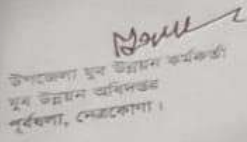 উপজেলা যুব উন্নয়ন কর্মকর্তা
যুব উন্নয়ন অধিদপ্তর
পূর্বধলা, নেত্রকোণা।